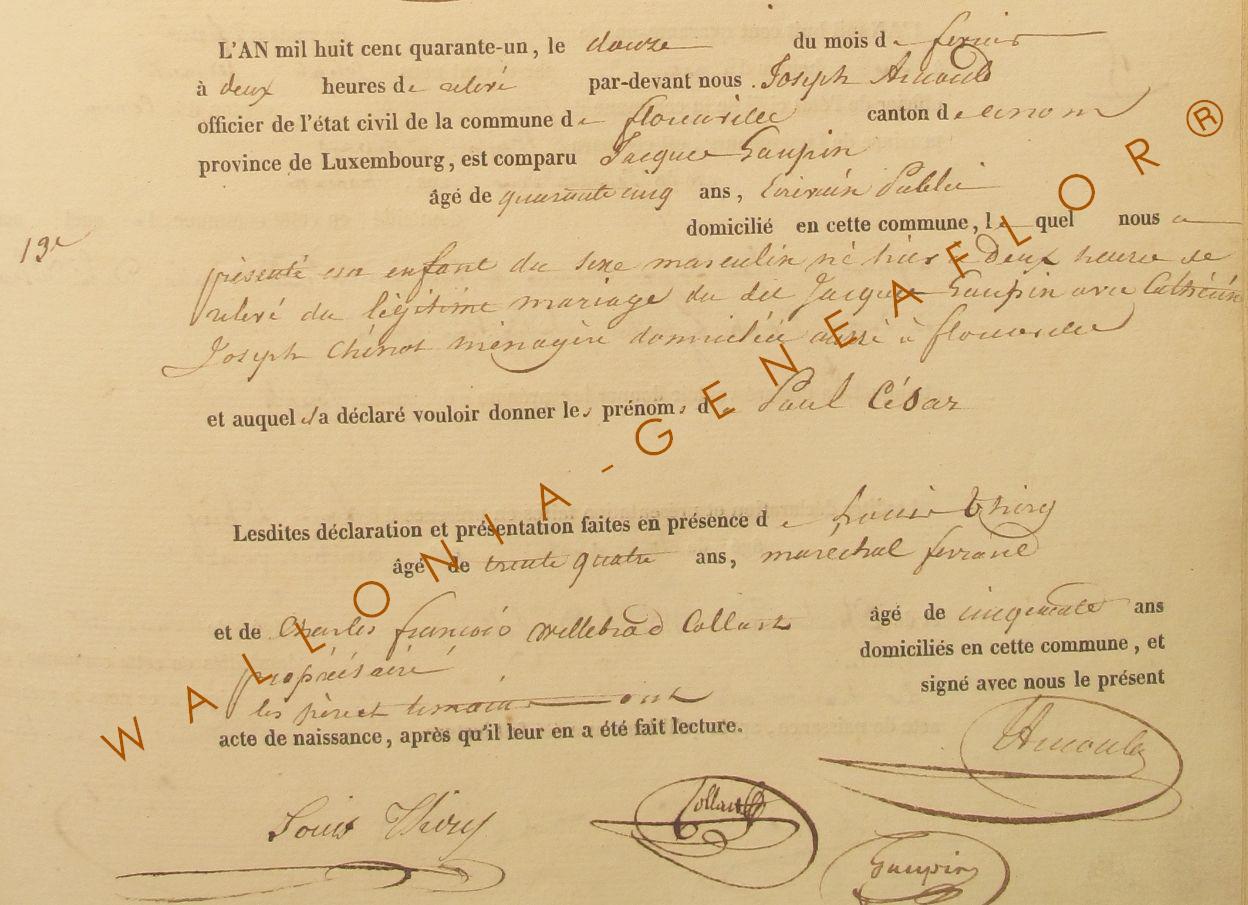 L'AN mil huit cent quarante-un, le douze du mois de fevrier
à deux heures de relevé par-devant nous Joseph Arnould
officier de l'état civil de la commune de florenville canton de idem
province de Luxembourg, est comparu Jacque Gaupin
âgé de quarante cinq ans, Ecrivain Public
domicilié en cette commune, le quel nous a
19e
présenté un enfant du sexe masculin né hier à deux heures de
relevé du légitime mariage du dit Jacque Gaupin avec Catherine
Joseph Chénot ménagère domiciliée aussi à florenville
et auquel il a déclaré vouloir donner les prénoms de Paul César
Lesdites déclaration et présentation faites en présence de Louis Thiry
âgé de trente quatre ans, maréchal ferrant
et de Charles françois Willebrod Collart âgé de cinquante ans
propriétaire domiciliés en cette commune, et
les père et temoins ont signé avec nous le présent
acte de naissance, après qu'il leur en a été fait lecture.
Arnould
Louis Thiry Collart
Gaupin
WALLONIA-GENEAFLOR®